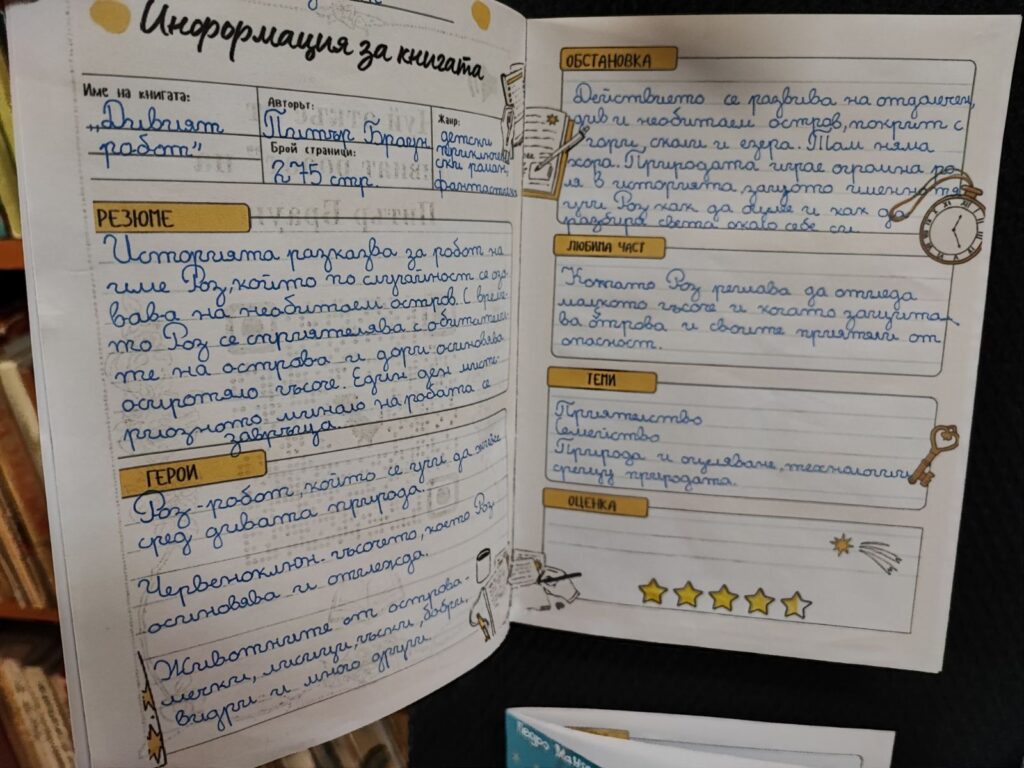 Информация за книгата
Име на книгата:
„Дивият
робот"
Авторът:
Питър Браун
Брой страници:
275 стр.
Жанр:
детски
приключен
ски роман,
фантастика
РЕЗЮМЕ
Историята разказва за робот на
име Роз, който по случайност се оза-
вава на необитаем остров. С време-
то Роз се сприятелява с обитатели-
те на острова и дори осиновява
осиротяло гъсоче. Един ден мисте-
риозното минало на робата се
завръща.
ГЕРОИ
Роз - робот, който се учи да живее
сред дивата природа.
Червеноклюн - гъсочето, което Роз
осиновява и отглежда.
Животните от острова -
мечки, лисици, гъски, бобри,
видри и много други.
ОБСТАНОВКА
Действието се развива на отдалечен,
див и необитаем остров, покрит с
гори, скали и езера. Там няма
хора. Природата играе огромна ро-
ля в историята, защото именно тя
учи Роз как да оцелее и как да
разбира света около себе си.
ЛЮБИМА ЧАСТ
Когато Роз решава да отгледа
малкото гъсоче и когато защита-
ва острова и своите приятели от
опасност.
ТЕМИ
Приятелство
Семейство
Природа и оцеляване, технологии
срещу природата.
ОЦЕНКА